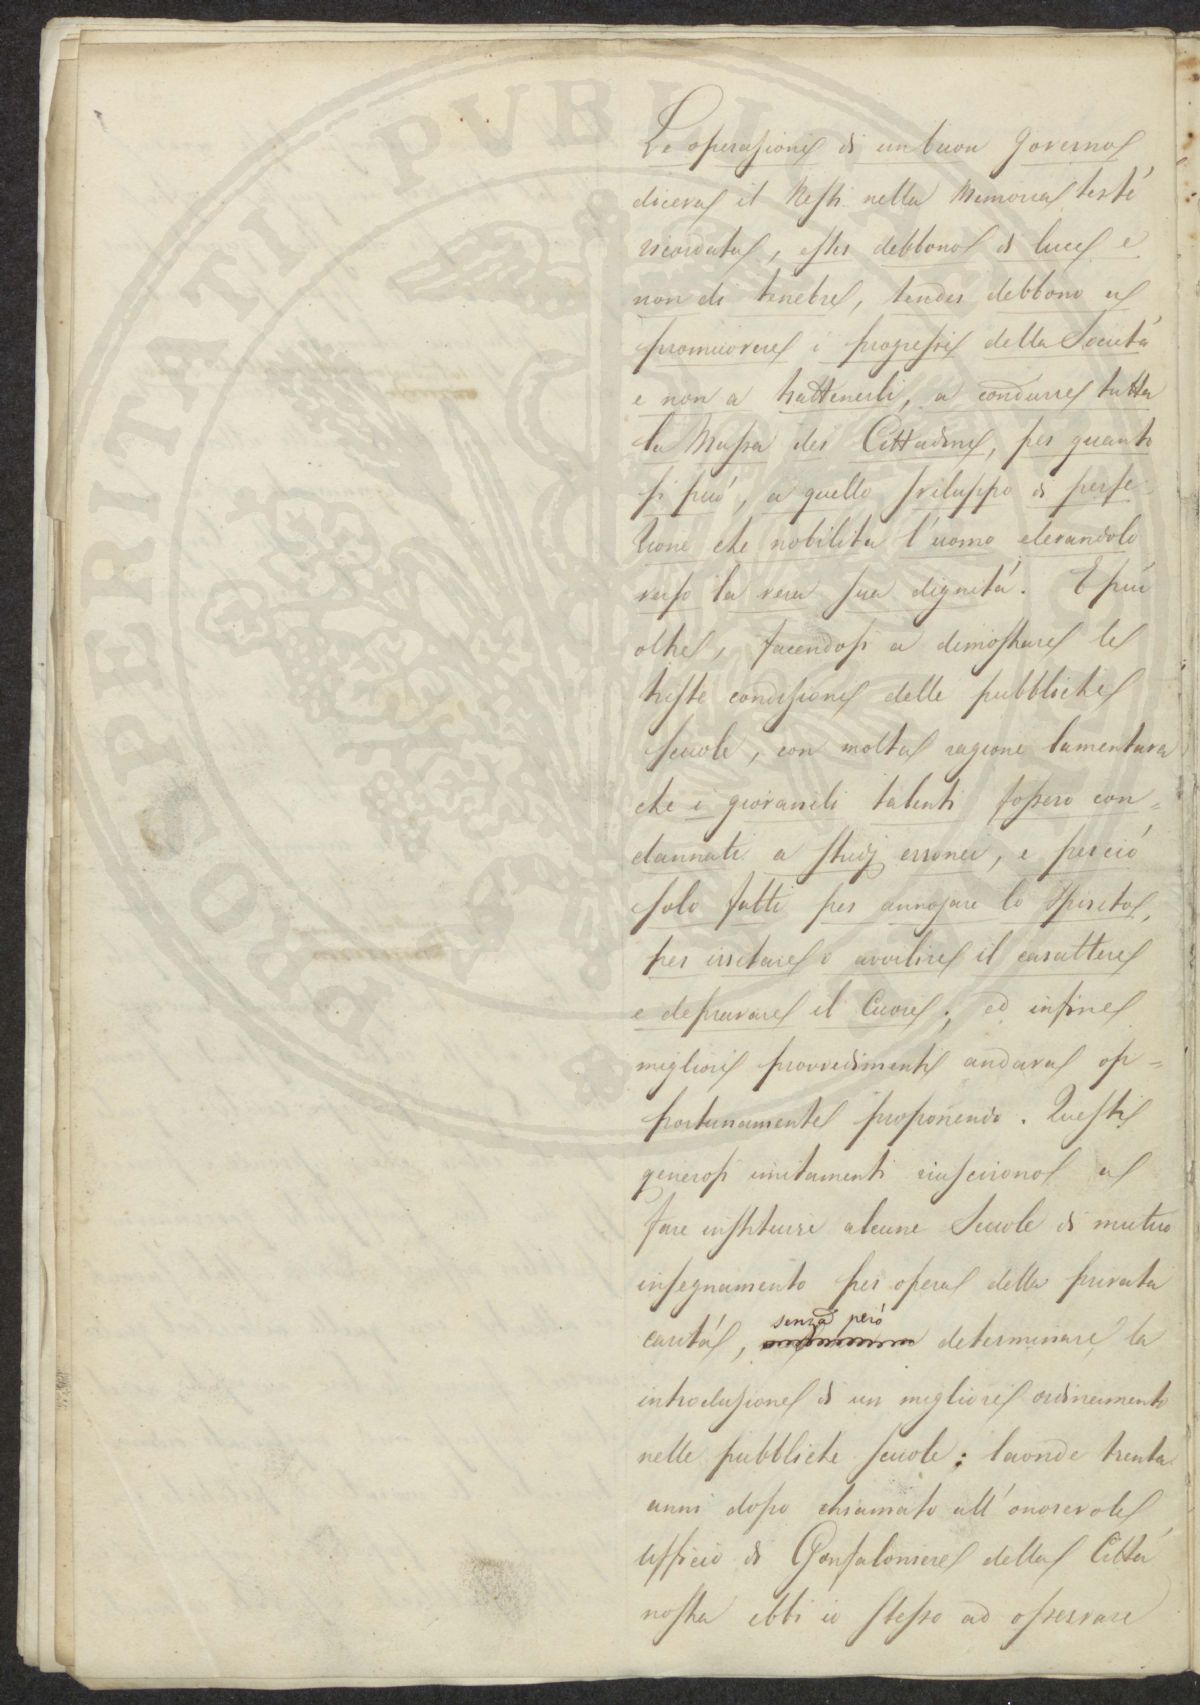 Le operazioni di un buon Governo
diceva il Nesti nella Memoria testè
ricordata, esser debbono di luce e
non di tenebre, tender debbono a
promuovere i progressi della Società
e non a trattenerli, a condurre tutta
la Massa dei Cittadini, per quanto
si può, a quello sviluppo di perfe-
zione che nobilita l'uomo elevandolo
verso la vera sua dignità. E più
oltre, facendosi a dimostrare le
triste condizioni delle pubbliche
scuole, con molta ragione lamentava
che i giovanili talenti fossero con=
dannati a studj erronei, e perciò
solo fatti per annojare lo Spirito,
per irritare o avvilire il carattere
e depravare il Cuore; ed infine
migliori provvedimenti andava op=
portunamente proponendo. Questi
generosi incitamenti riuscirono a
fare instituire alcune Scuole di mutuo
insegnamento per opera della privata
carità, senza però determinare la
introduzione di un migliore ordinamento
nelle pubbliche scuole: laonde trenta
anni dopo chiamato all'onorevole
ufficio di Gonfaloniere della Città
nostra ebbi io stesso ad osservare
PERITATI PVBLI